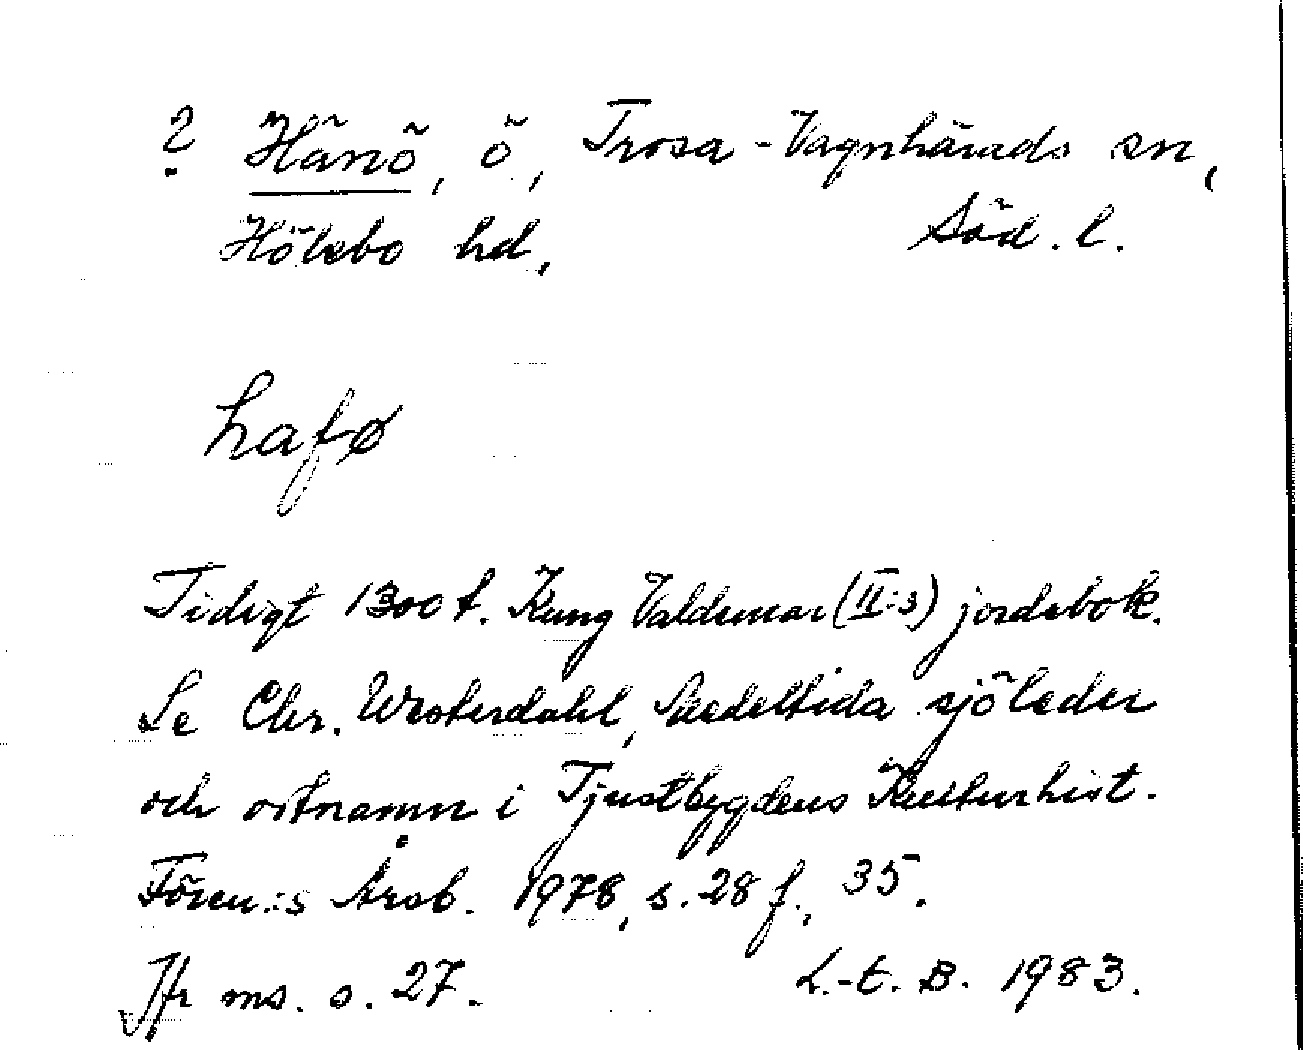 ? Hänö, ö, Trosa-Vagnhärads sn,
Hölebo hd, Söd. l.
hafø
Tidigt 1300 t. Kung Valdemar (II:s) jordebok.
Se Chr. Westerdahl, Medeltida sjöleder
och ortnamn i Tjustbygdens Kulturhist.
Fören:s Årsb. 1978, s. 28 f., 35.
Jfr ms. s. 27. L.-t. B. 1983.